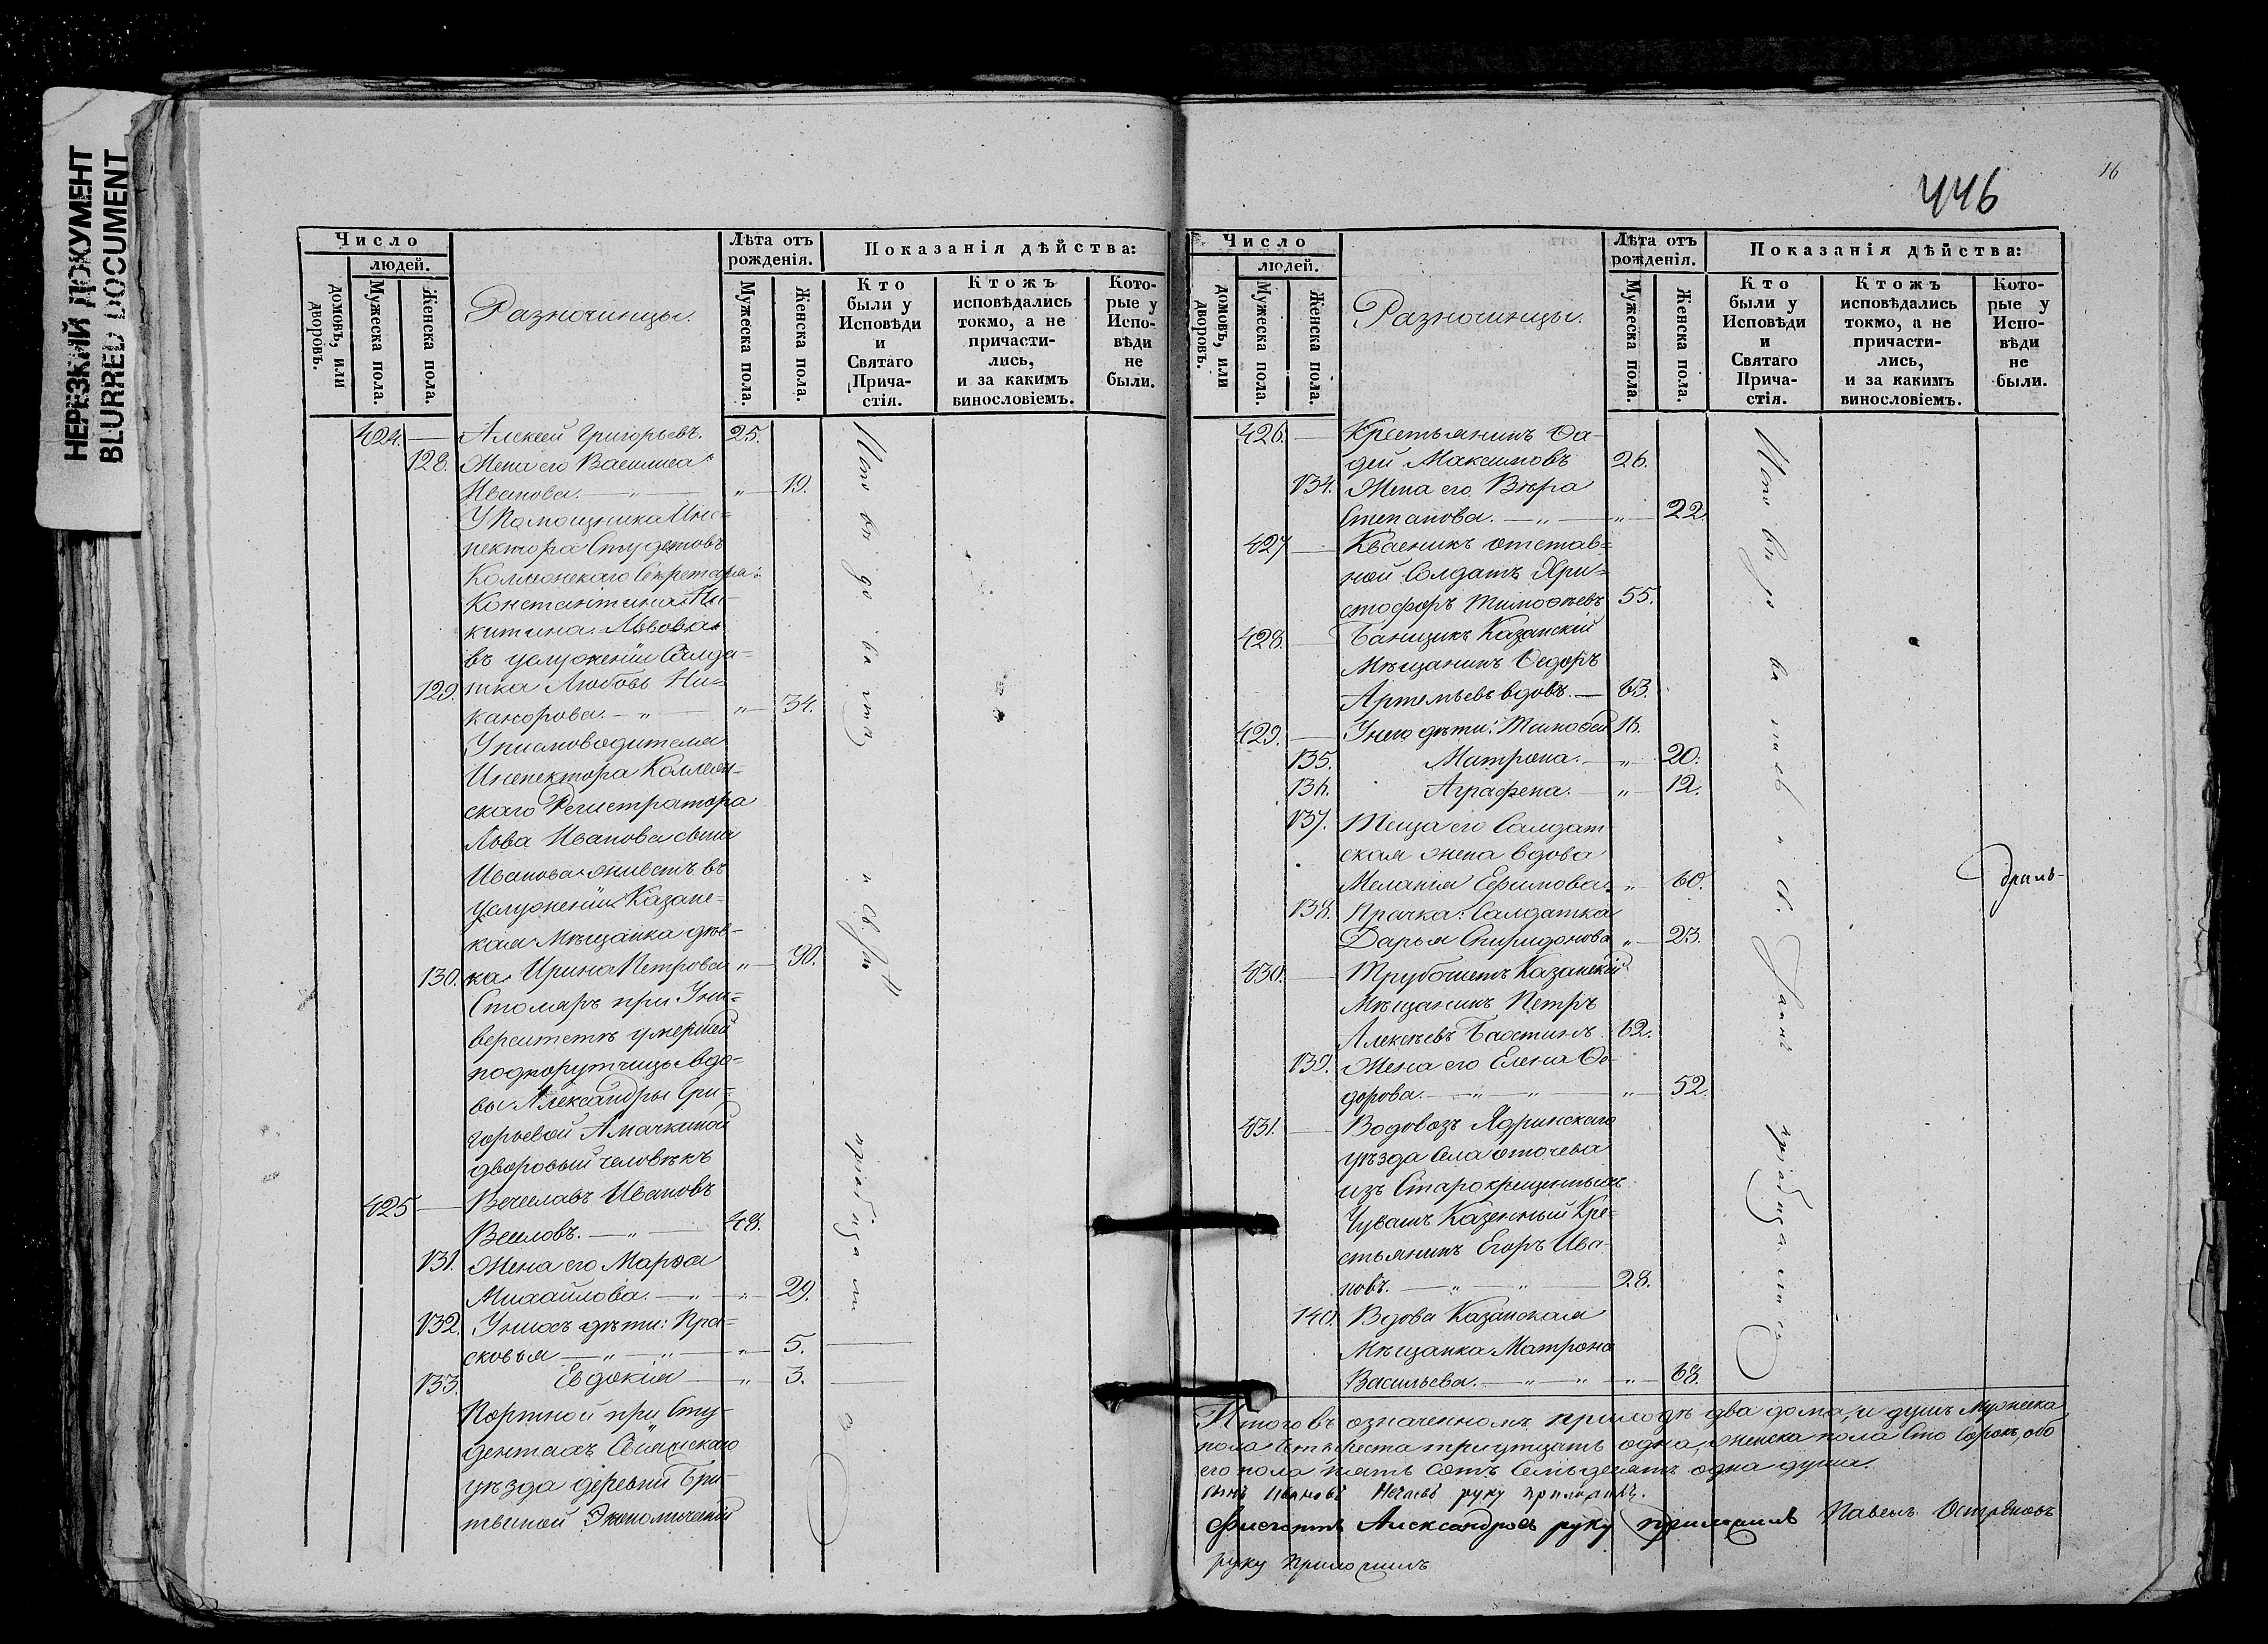 НЕРЕЗКИЙ ДОКУМЕНТ
BLURRED DOCUMENT
Число
людей.
домовъ, или дворовъ.
Мужеска пола.
Женска пола.
Разночинцы.
Лѣта отъ рожденія.
Мужеска пола.
Женска пола.
Показанія дѣйства:
Кто были у Исповѣди и Святаго Причастія.
Ктожъ исповѣдались токмо, а не причастились, и за какимъ винословіемъ.
Которые у Исповѣди не были.
424. — Алексей Григорьевъ. 25.
128. Жена его Василиса
Иванова. — „ — „ — 19.
У Помощника Инс=
пектора Студетовъ
Коллежскаго Секретаря
Константина Ни-
китина Львова
въ услуженіи Салда-
129. тка Любовь Ни=
канорова. — „ — „ — 34.
У писмоводителя
Инспектора Коллеж-
скаго Регистратора
Льва Иванова сына
Иванова живетъ въ
услуженіи Казанс-
кая Мѣщанка дѣв-
130. ка Ирина Петрова „ — 30.
Столяръ при Уни=
верситетѣ умершей
подпорутчицы вдо-
вы Александры Гри-
горьевой Амачкиной
дворовый человѣкъ
425 — Вечеславъ Ивановъ
Веиловъ. — „ — 48.
131. Жена его Марѳа
Михайлова. — „ — „ — 29.
132. У нихъ дѣти: Пра=
сковья — „ — „ — „ — 5.
133. Евдокія — „ — 3.
Портной при Сту-
дентахъ Свіяжскаго
уѣзда деревни Бри-
твиной Экономическій
446
16
Число
людей.
домовъ, или дворовъ.
Мужеска пола.
Женска пола.
Разночинцы.
Лѣта отъ рожденія.
Мужеска пола.
Женска пола.
Показанія дѣйства:
Кто были у Исповѣди и Святаго Причастія.
Ктожъ исповѣдались токмо, а не причастились, и за какимъ винословіемъ.
Которые у Исповѣди не были.
426. — Крестьянинъ Ѳа-
дей Максимовъ 26.
134. Жена его Вѣра
Степанова. — „ — „ — 22.
427 — Квасникъ отстав=
ной Солдатъ Хри=
стофоръ Тимоѳѣевъ 55.
428. — Банщикъ Казанскій
Мѣщанинъ Ѳедоръ
Артемьевъ вдовъ. — 63.
429. — У него дѣти: Тимоѳей 16.
135. Матрона. — „ — 20.
136. Аграфена. — „ — 12.
137. Теща его Салдат
ская жена вдова
Меланія Ефимова. „ — 60.
138. Прачка: Салдатка
Дарья Спиридонова „ — 23.
430. — Трубочистъ Казанскій
Мѣщанинъ Петръ
Алексѣевъ 62.
139. Жена его Елена Ѳе-
дорова. — „ — „ — „ — 52.
431. — Водовозъ Ядринскаго
уѣзда села
изъ Старокрещенныхъ
Чувашъ Казенный Кре-
стьянинъ Егоръ Ива-
новъ. — „ — „ — 28.
140. Вдова Казанская
Мѣщанка Матрона
Васильева. — „ — „ — „ — 68.
Итого въ означенномъ приходѣ два дома, и душъ Мужеска
пола Четыреста тритцать одна, женска пола Сто Сорокъ, обо
его пола пять Сотъ Семьдесятъ одна душа.
Ивановъ Нечаевъ руку приложилъ.
Александровъ руку приложилъ Павелъ Островновъ
руку приложилъ